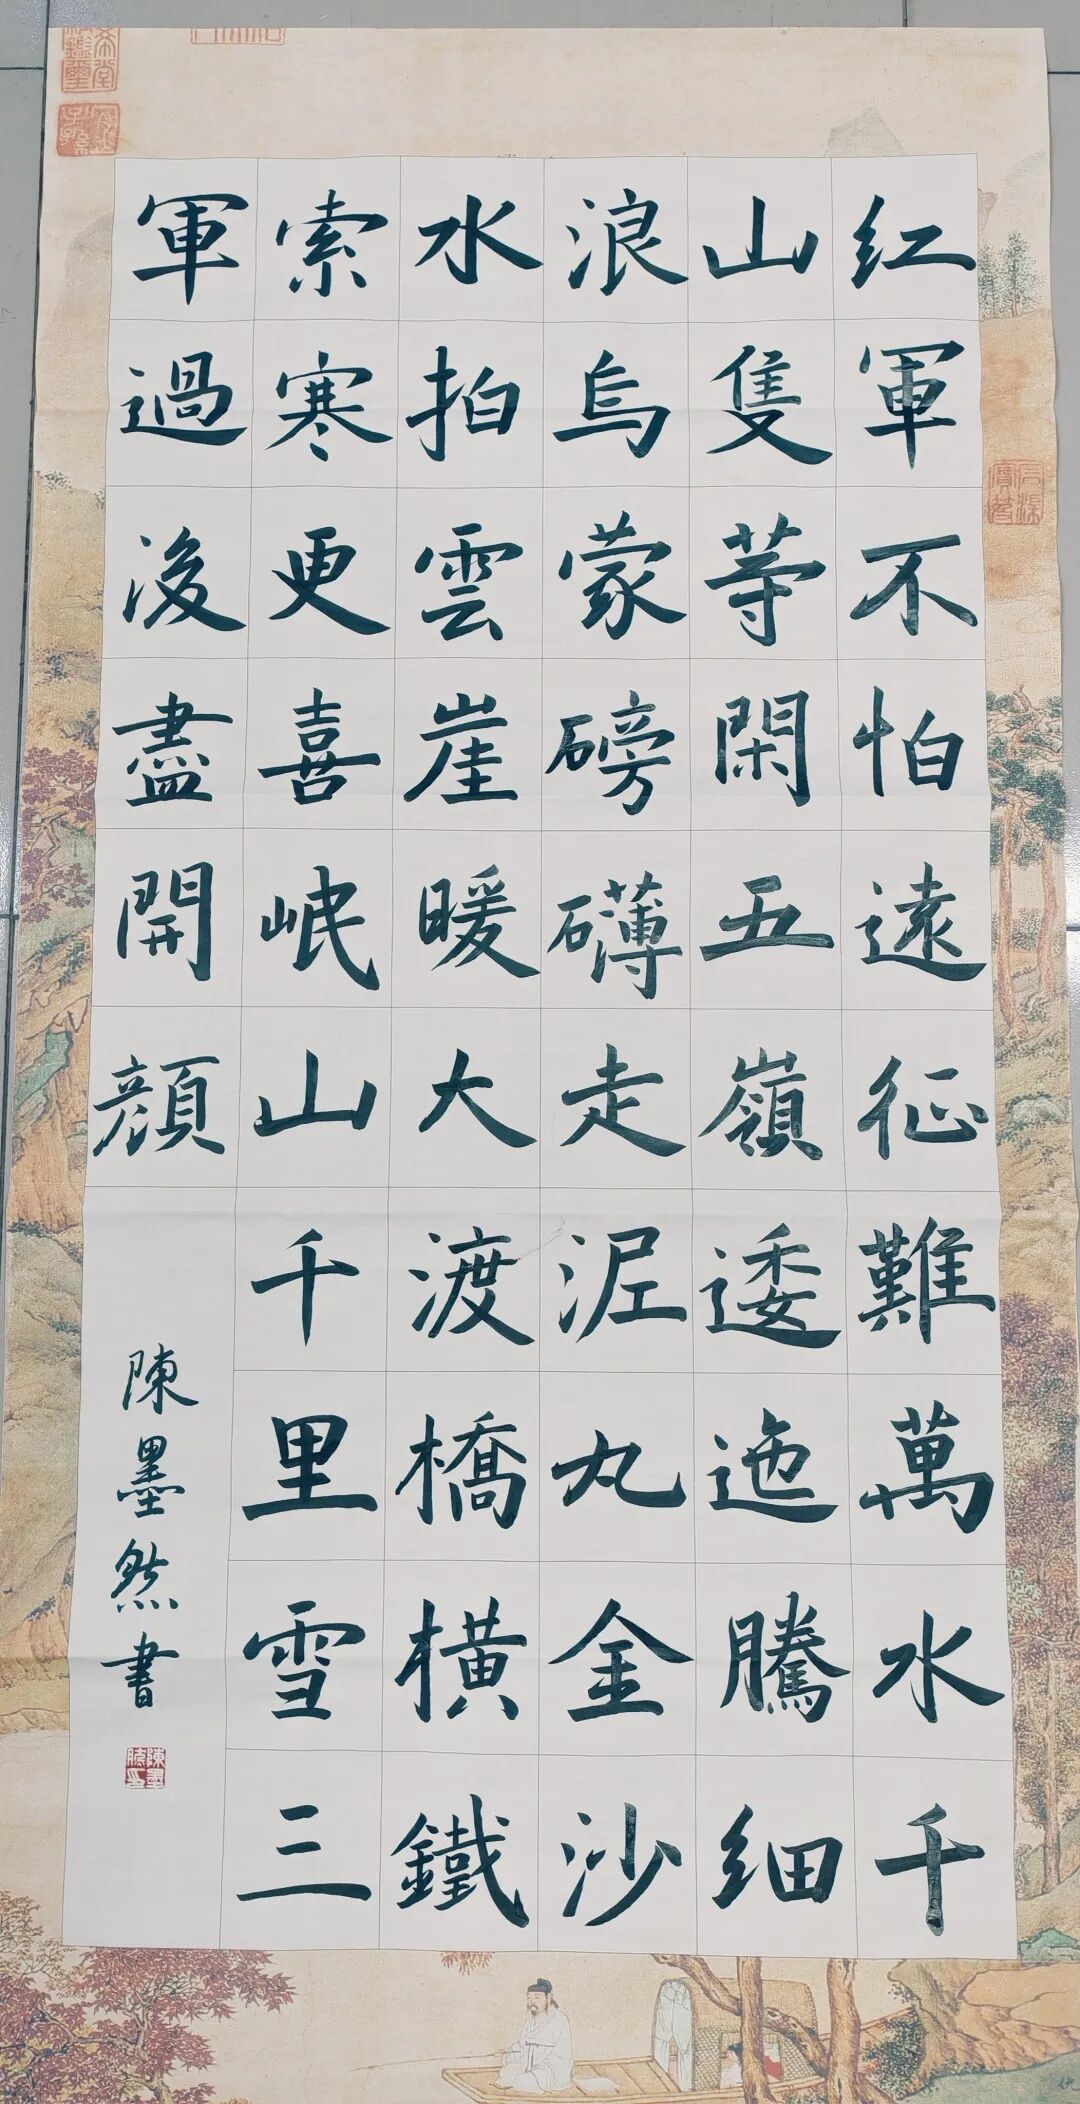 红軍不怕遠征難萬水千
山隻等閑五嶺逶迤騰細
浪烏蒙磅礴走泥丸金沙
水拍雲崖暖大渡橋橫鐵
索寒更喜岷山千里雪三
軍過後盡開顔
陳墨然書